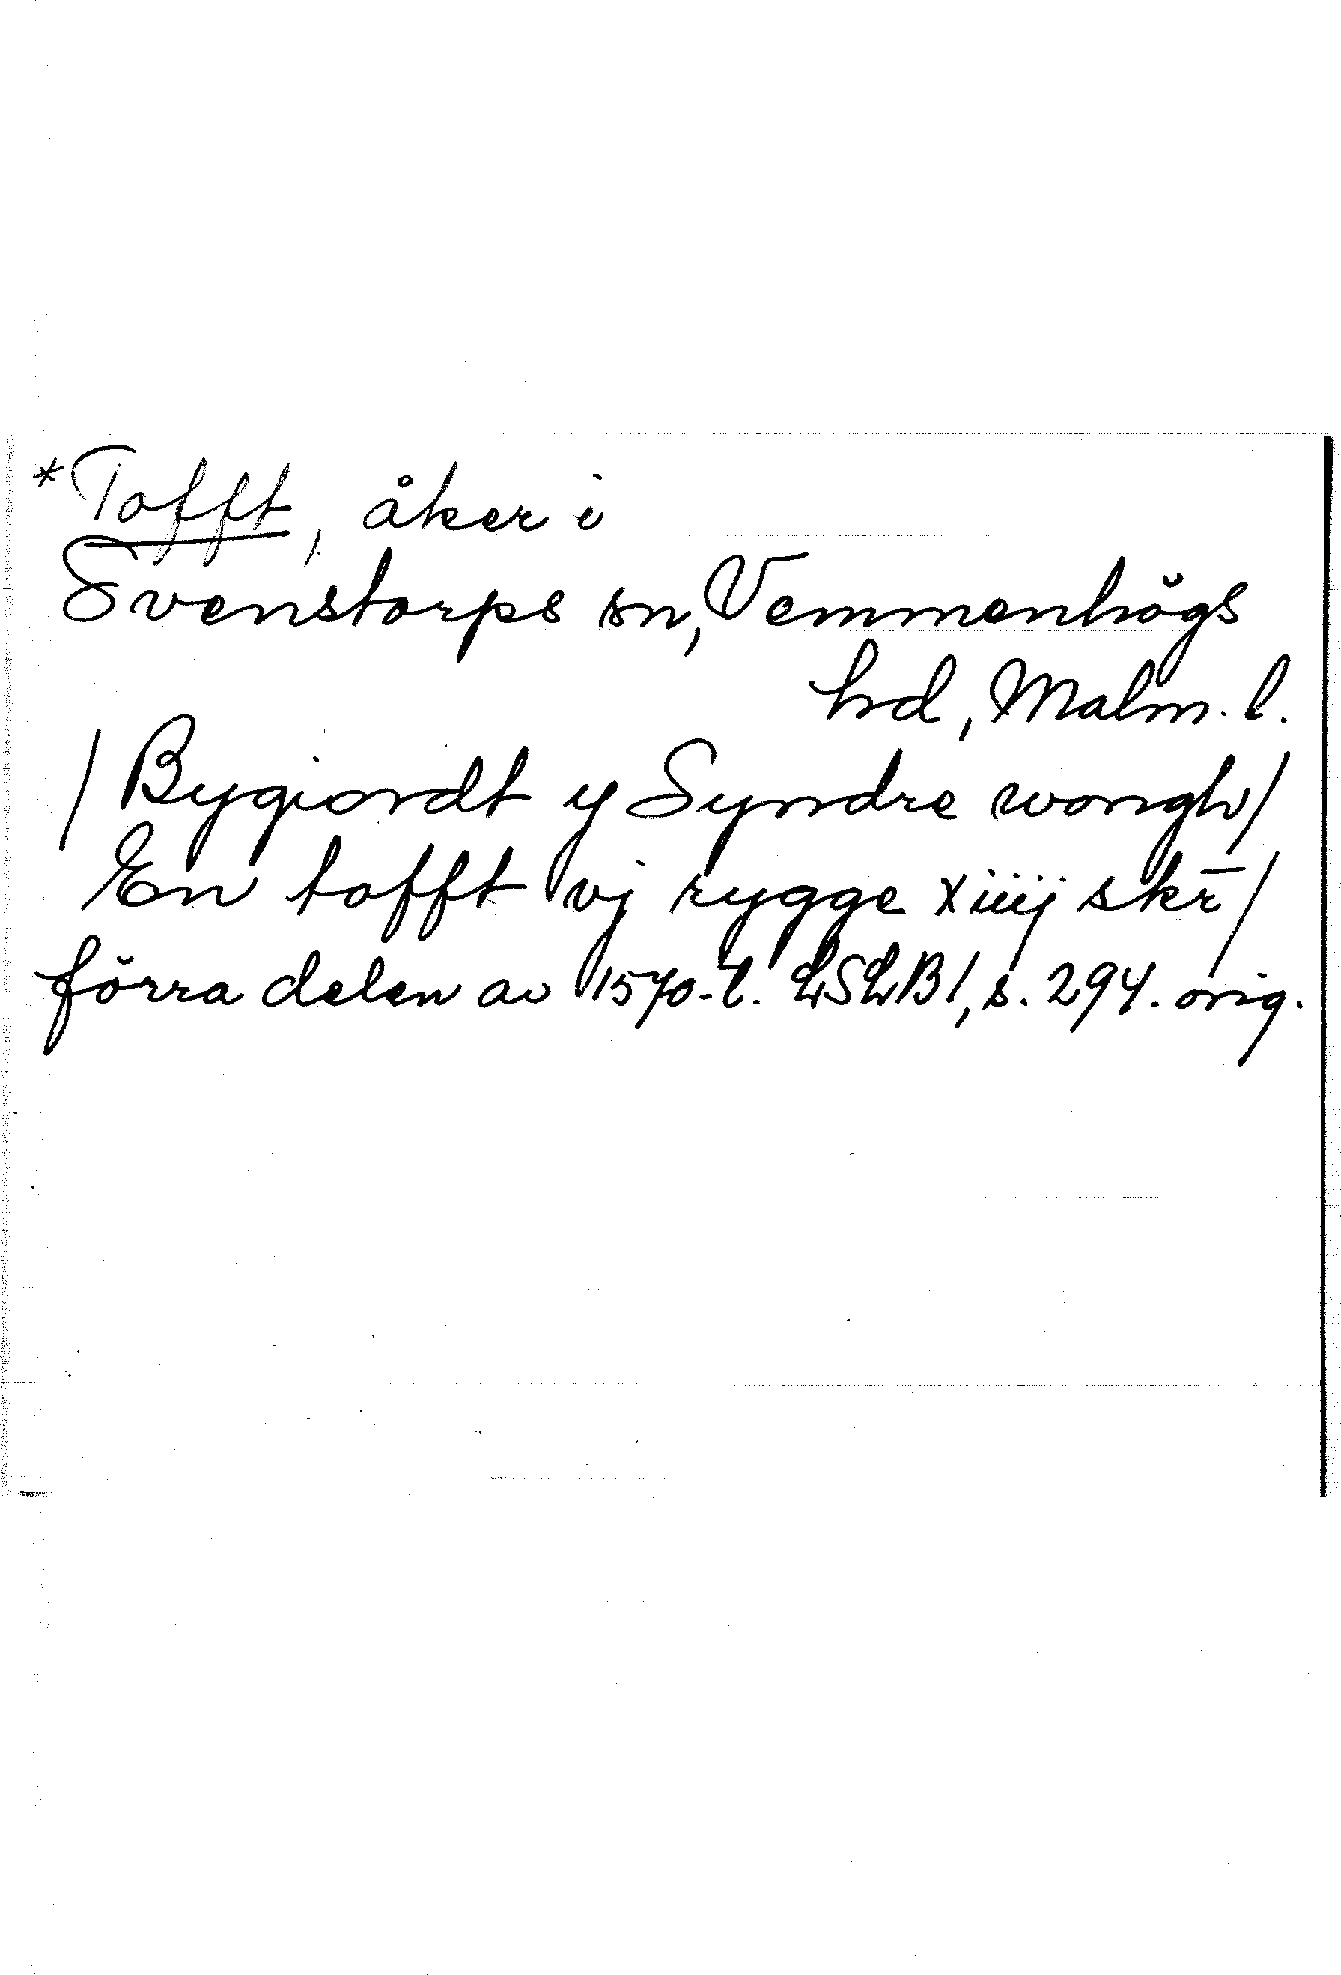 *Tofft, åker i
Svenstorps sn, Vemmenhögs
hd, Malm. l.
/ Bygiordt y Syndre wongh /
En tofft vj rygge xiiij skr̄ /
förra delen av 1570-t. LSLB1, s. 294. orig.